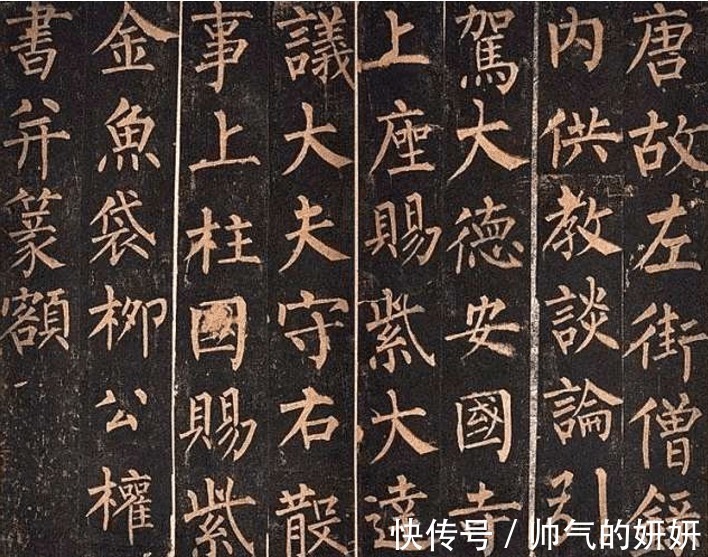 唐故左街僧錄
内供教談論引
駕大德安國寺
上座賜紫大達
議大夫守右散
事上柱國賜紫
金魚袋柳公權
書并篆額
快传号 / 帅气的妍妍